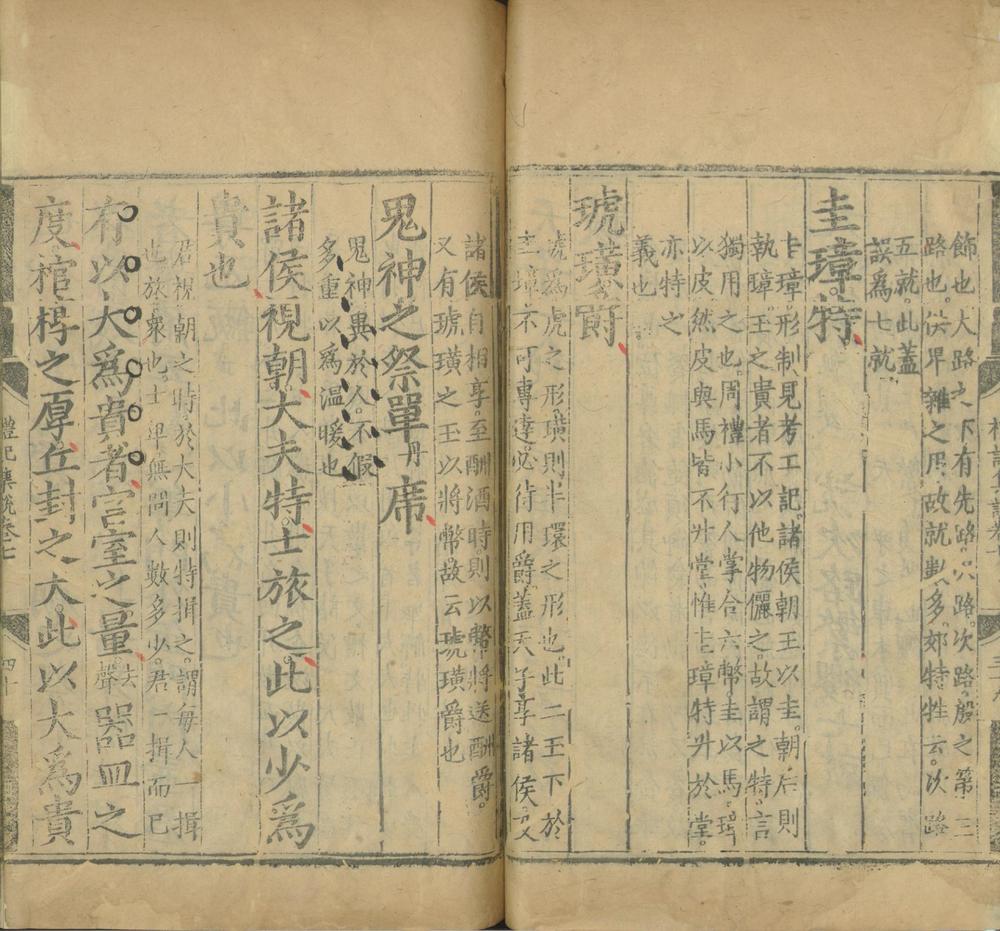 飾也大路之下有先路次路次路殷之第三
路也供卑雜之用故就數多郊特牲云次路
五就此蓋
誤為七就
圭璋特
圭璋形制見考工記諸侯朝王以圭朝后則
執璋玉之貴者不以他物儷之故謂之特言
獨用之也周禮小行人掌合六幣圭以馬璋
以皮然皮與馬皆不升堂惟圭璋特升於堂
亦特之
義也
琥璜爵
琥為虎之形璜則半環之形也此二玉下於
圭璋不可專達必待用爵蓋天子享諸侯及
諸侯自相享至酬酒時則以幣將送酬爵
又有琥璜之玉以將幣故云琥璜爵也
鬼神之祭單丹席
鬼神異於人不假
多重以為溫暖也
諸侯視朝大夫特士旅之此以少為
貴也
君視朝之時於大夫則特揖之謂每人一揖
也旅衆也士卑無問人數多少君一揖而已
有以大為貴者宮室之量去聲器皿之
度棺椁之厚丘封之大此以大為貴
禮記集說卷七
四十